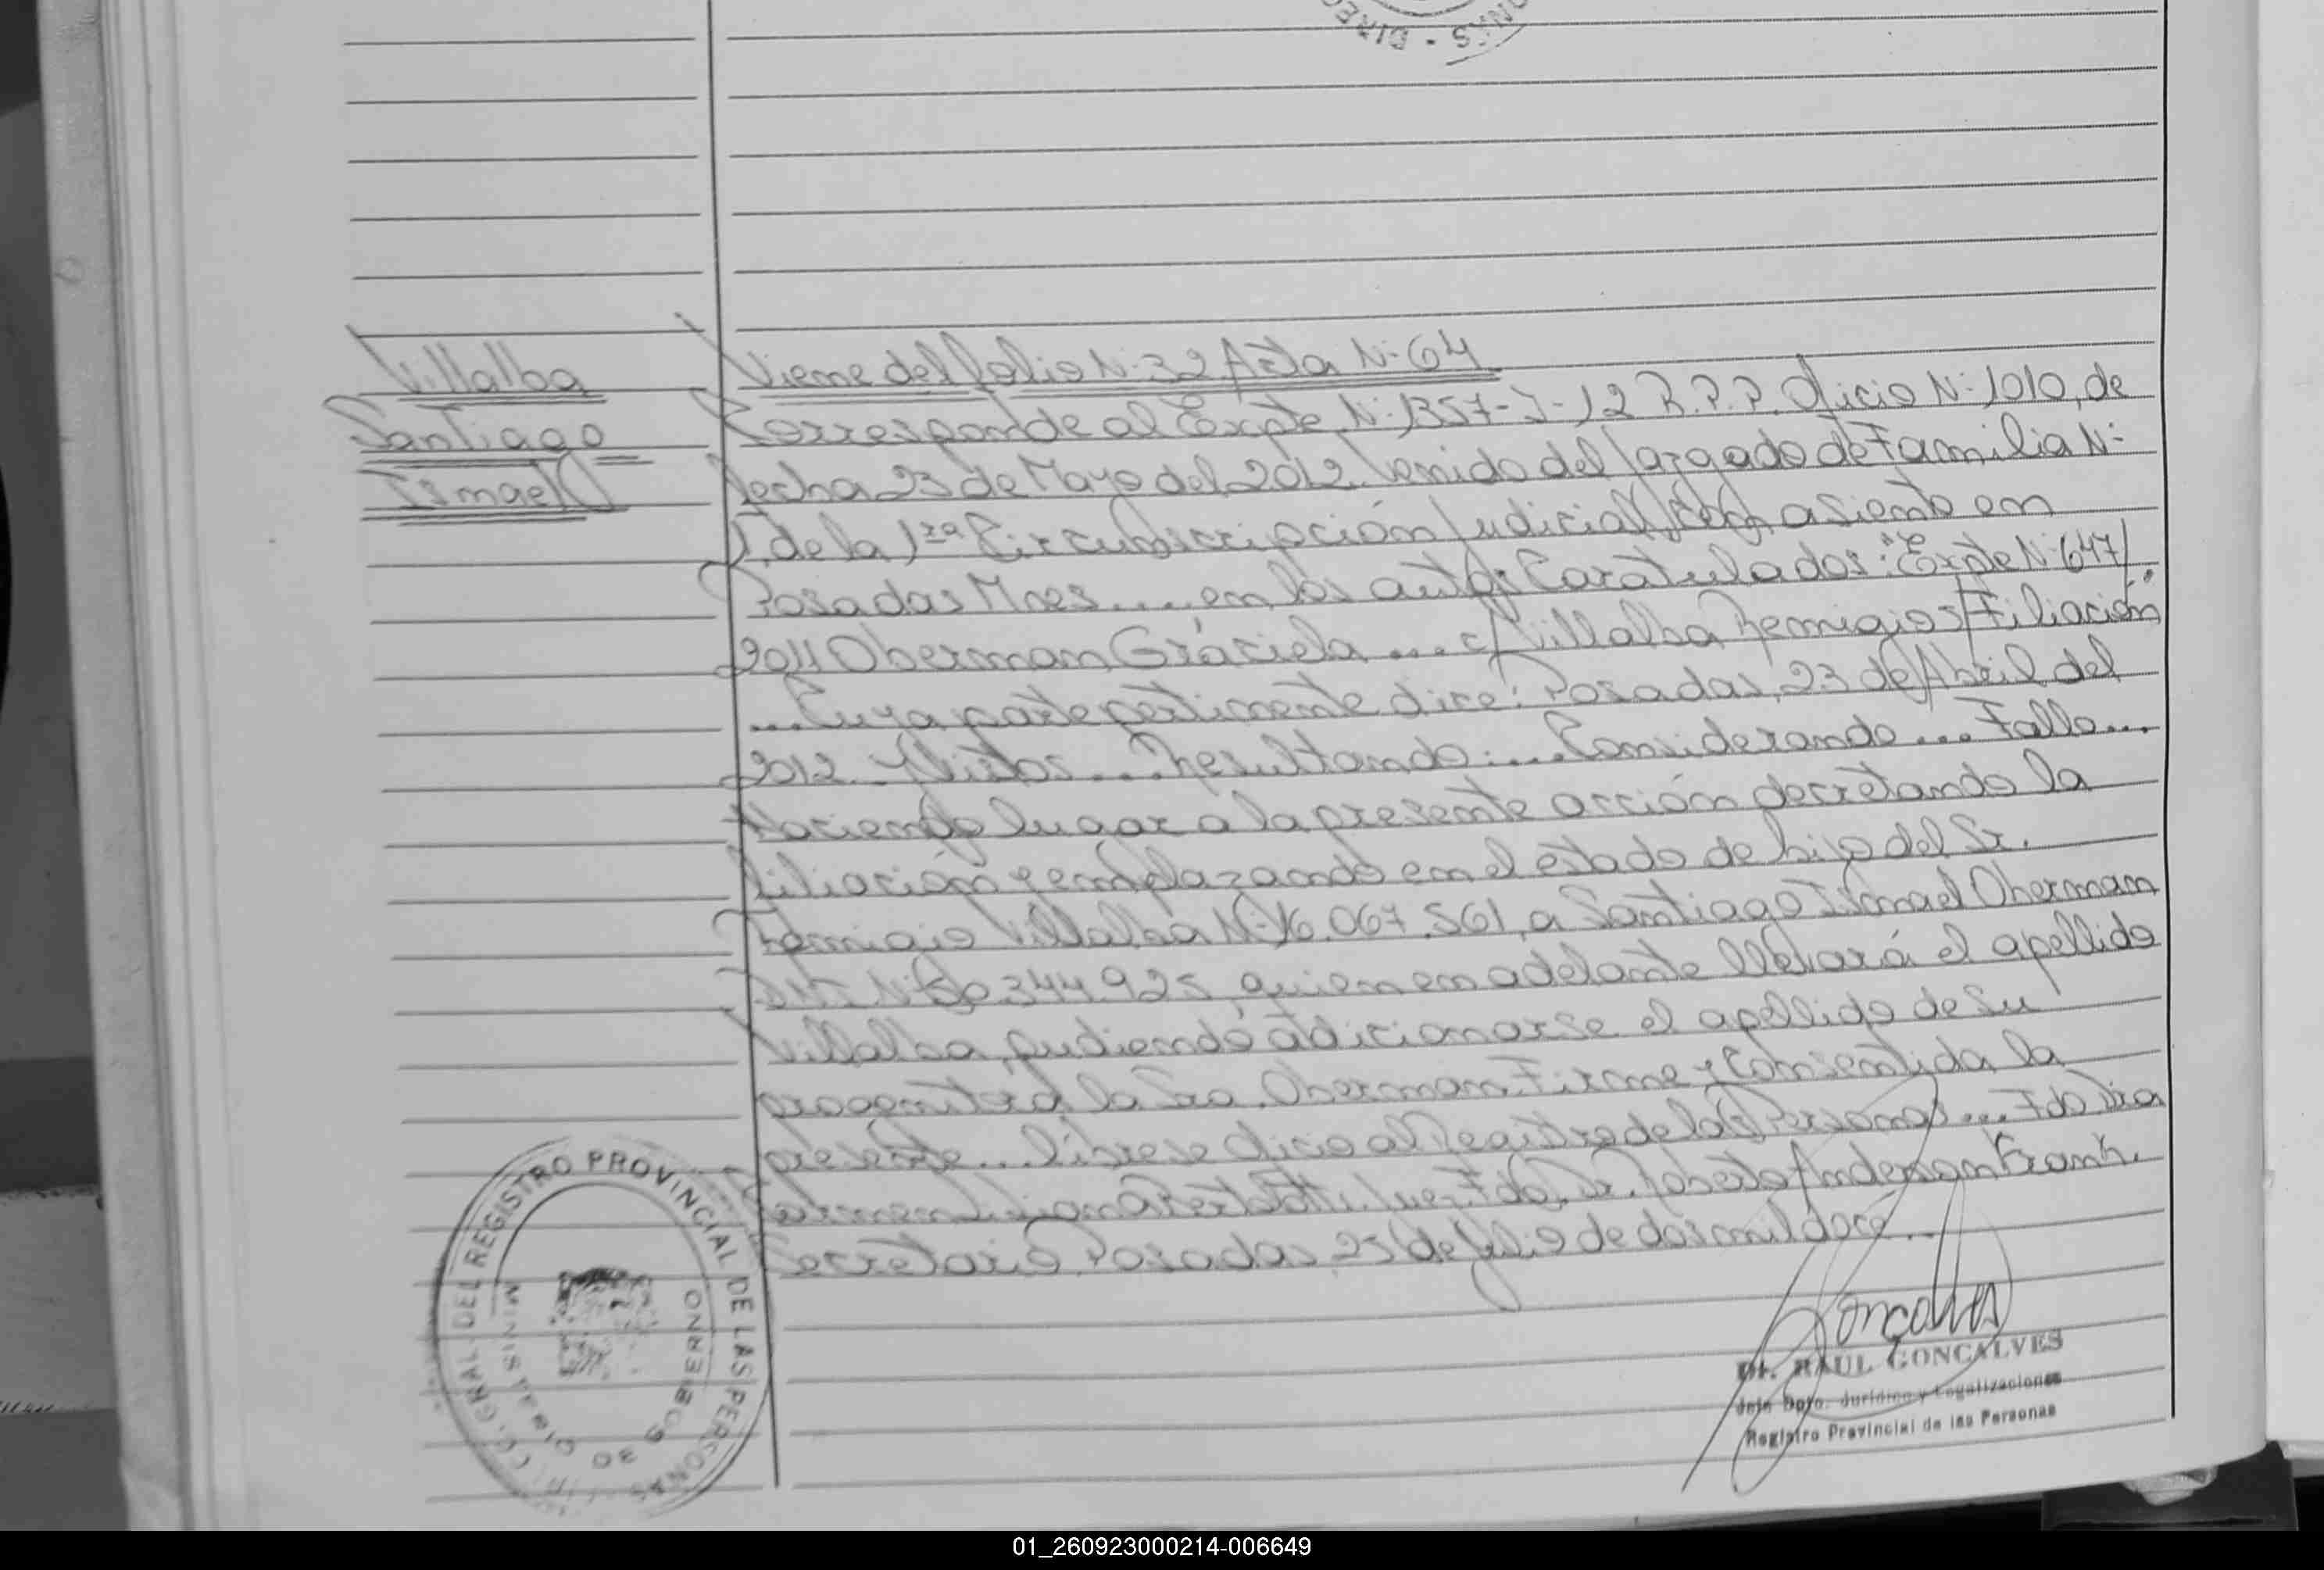 Villalba
Santiago
Ismael
Viene del folio N: 32 Acta N: 64
Corresponde al Expte. N: 1357-J-12 R.P.P. Oficio N: 1010, de
fecha 23 de Mayo del 2012. Venido del Juzgado de Familia N:
1, de la 1ra Circunscripción Judicial, con asiento en
Posadas Mnes.... en los autos Caratulados: "Expte N: 647/
2011 Oberman, Graciela ... c/ Villalba Remigio s/ Filiación
... Cuya parte pertinente dice: Posadas, 23 de Abril del
2012. Y Vistos... Resultando:... Considerando... Fallo...
Haciendo lugar a la presente acción decretando la
filiación y emplazando en el estado de hijo del Sr.
Remigio Villalba N: 16.067.561, a Santiago Ismael Oberman
N: 344.925, quien en adelante llevará el apellido
Villalba, pudiendo adicionarse el apellido de su
progenitora la Sra. Oberman. Firme y Consentida la
presente... líbrese oficio al Registro de las Personas... Fdo Dra
Juez. Fdo. Dr. Roberto Anderson Frank.
Secretario. Posadas, 23 de Julio de dos mil doce...
Goncalves
Dr. RAUL GONCALVES
Jefe Dpto. Jurídico y Legalizaciones
Registro Provincial de las Personas
DIREC. GRAL. DEL REGISTRO PROVINCIAL DE LAS PERSONAS
MINISTERIO DE GOBIERNO
01_260923000214-006649